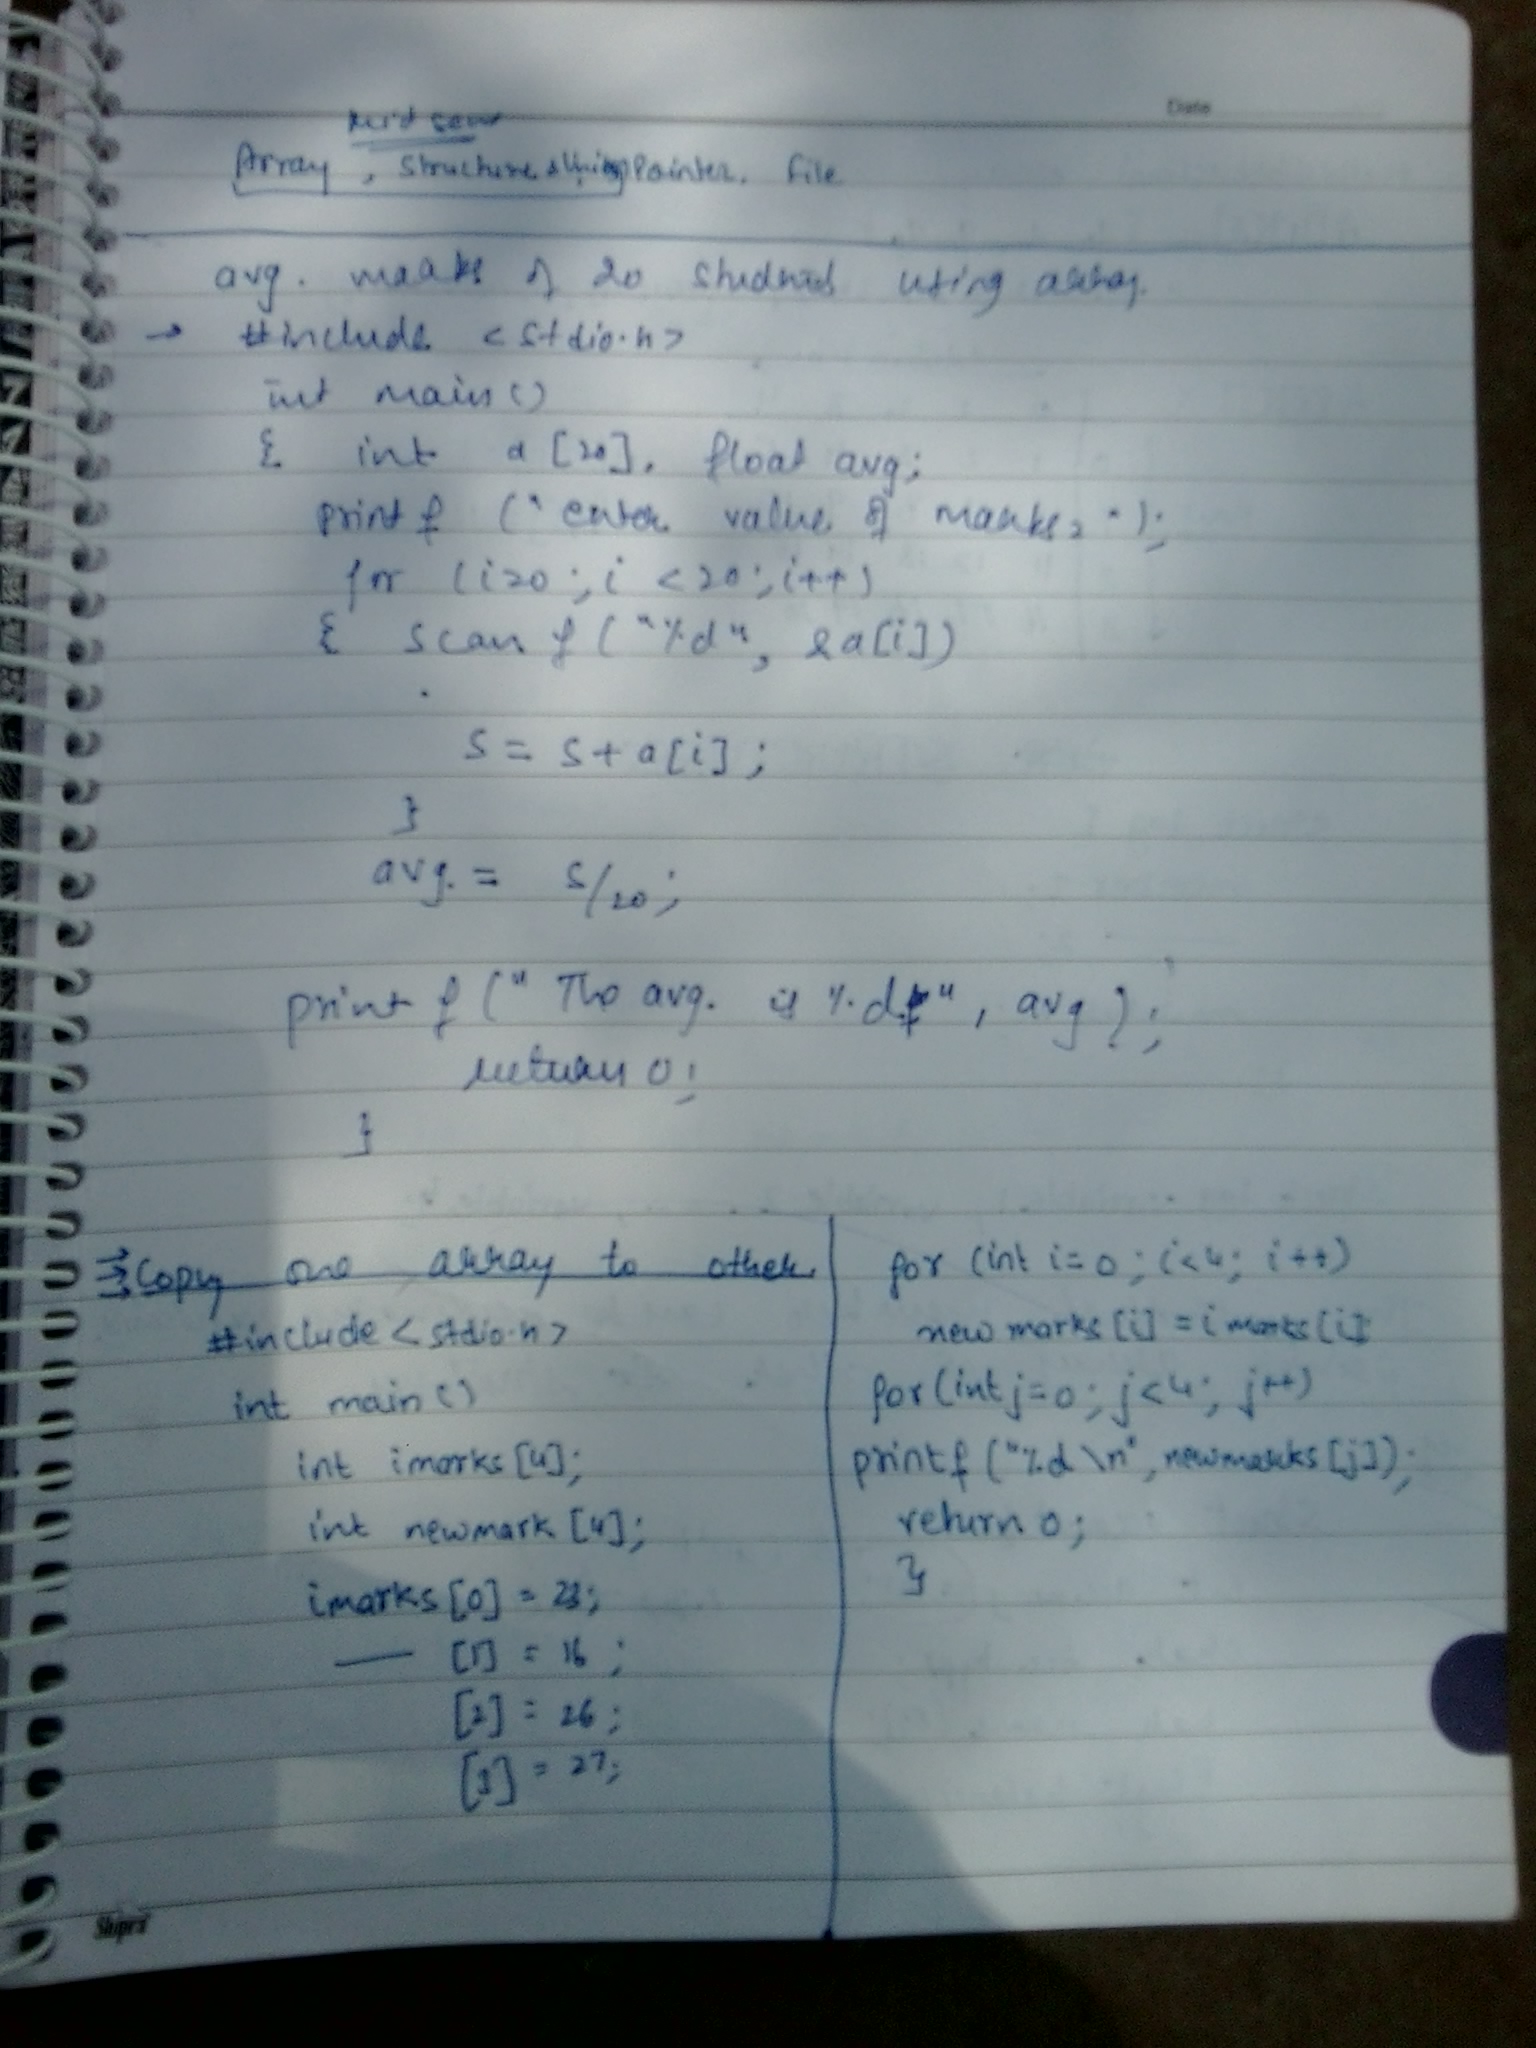 Date
Mid sem
Array, Structure string Pointer. File
avg. marks of 20 students using array.
→ #include <stdio.h>
int main()
{ int a[20], float avg;
printf ("enter value of marks, ");
for (i=0; i<20; i++)
{ scanf ("%d", &a[i])
s = s+a[i];
}
avg. = s/20;
printf (" The avg. is %df", avg);
return 0;
}
Copy one array to other
#include <stdio.h>
int main()
int imarks[4];
int newmark[4];
imarks[0] = 23;
— [1] = 16;
[2] = 26;
[3] = 27;
for (int i=0; i<4; i++)
newmarks[i] = imarks[i]
for(int j=0; j<4; j++)
printf ("%d \n", newmarks[j]);
return 0;
}
Shipra